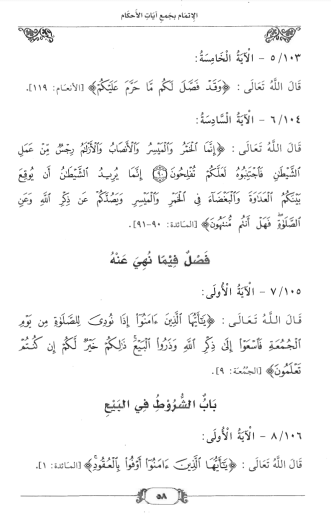 الإتمام بجمع آيات الأحكام
٥/١٠٣ - الْآيَةُ الْخَامِسَةُ:
قَالَ اللَّهُ تَعَالَى: ﴿وَقَدْ فَصَّلَ لَكُم مَّا حَرَّمَ عَلَيْكُمْ﴾ [الأنعام: ١١٩].
٦/١٠٤ - الْآيَةُ السَّادِسَةُ:
قَالَ اللَّهُ تَعَالَى: ﴿إِنَّمَا الْخَمْرُ وَالْمَيْسِرُ وَالْأَنصَابُ وَالْأَزْلَامُ رِجْسٌ مِّنْ عَمَلِ
الشَّيْطَانِ فَاجْتَنِبُوهُ لَعَلَّكُمْ تُفْلِحُونَ ۝٩٠ إِنَّمَا يُرِيدُ الشَّيْطَانُ أَن يُوقِعَ
بَيْنَكُمُ الْعَدَاوَةَ وَالْبَغْضَاءَ فِي الْخَمْرِ وَالْمَيْسِرِ وَيَصُدَّكُمْ عَن ذِكْرِ اللَّهِ وَعَنِ
الصَّلَوٰةِ فَهَلْ أَنتُم مُّنتَهُونَ﴾ [المائدة: ٩٠-٩١].
فَصْلٌ فِيمَا نُهِيَ عَنْهُ
٧/١٠٥ - الْآيَةُ الْأُولَى:
قَالَ اللَّهُ تَعَالَى: ﴿يَٰأَيُّهَا الَّذِينَ ءَامَنُوٓا إِذَا نُودِيَ لِلصَّلَوٰةِ مِن يَوْمِ
الْجُمُعَةِ فَاسْعَوْا إِلَىٰ ذِكْرِ اللَّهِ وَذَرُوا الْبَيْعَ ذَٰلِكُمْ خَيْرٌ لَّكُمْ إِن كُنتُمْ
تَعْلَمُونَ﴾ [الجُمُعَة: ٩].
بَابُ الشُّرُوطِ فِي الْبَيْعِ
٨/١٠٦ - الْآيَةُ الْأُولَى:
قَالَ اللَّهُ تَعَالَى: ﴿يَٰأَيُّهَا الَّذِينَ ءَامَنُوٓا أَوْفُوا بِالْعُقُودِ﴾ [المائدة: ١].
٥٨